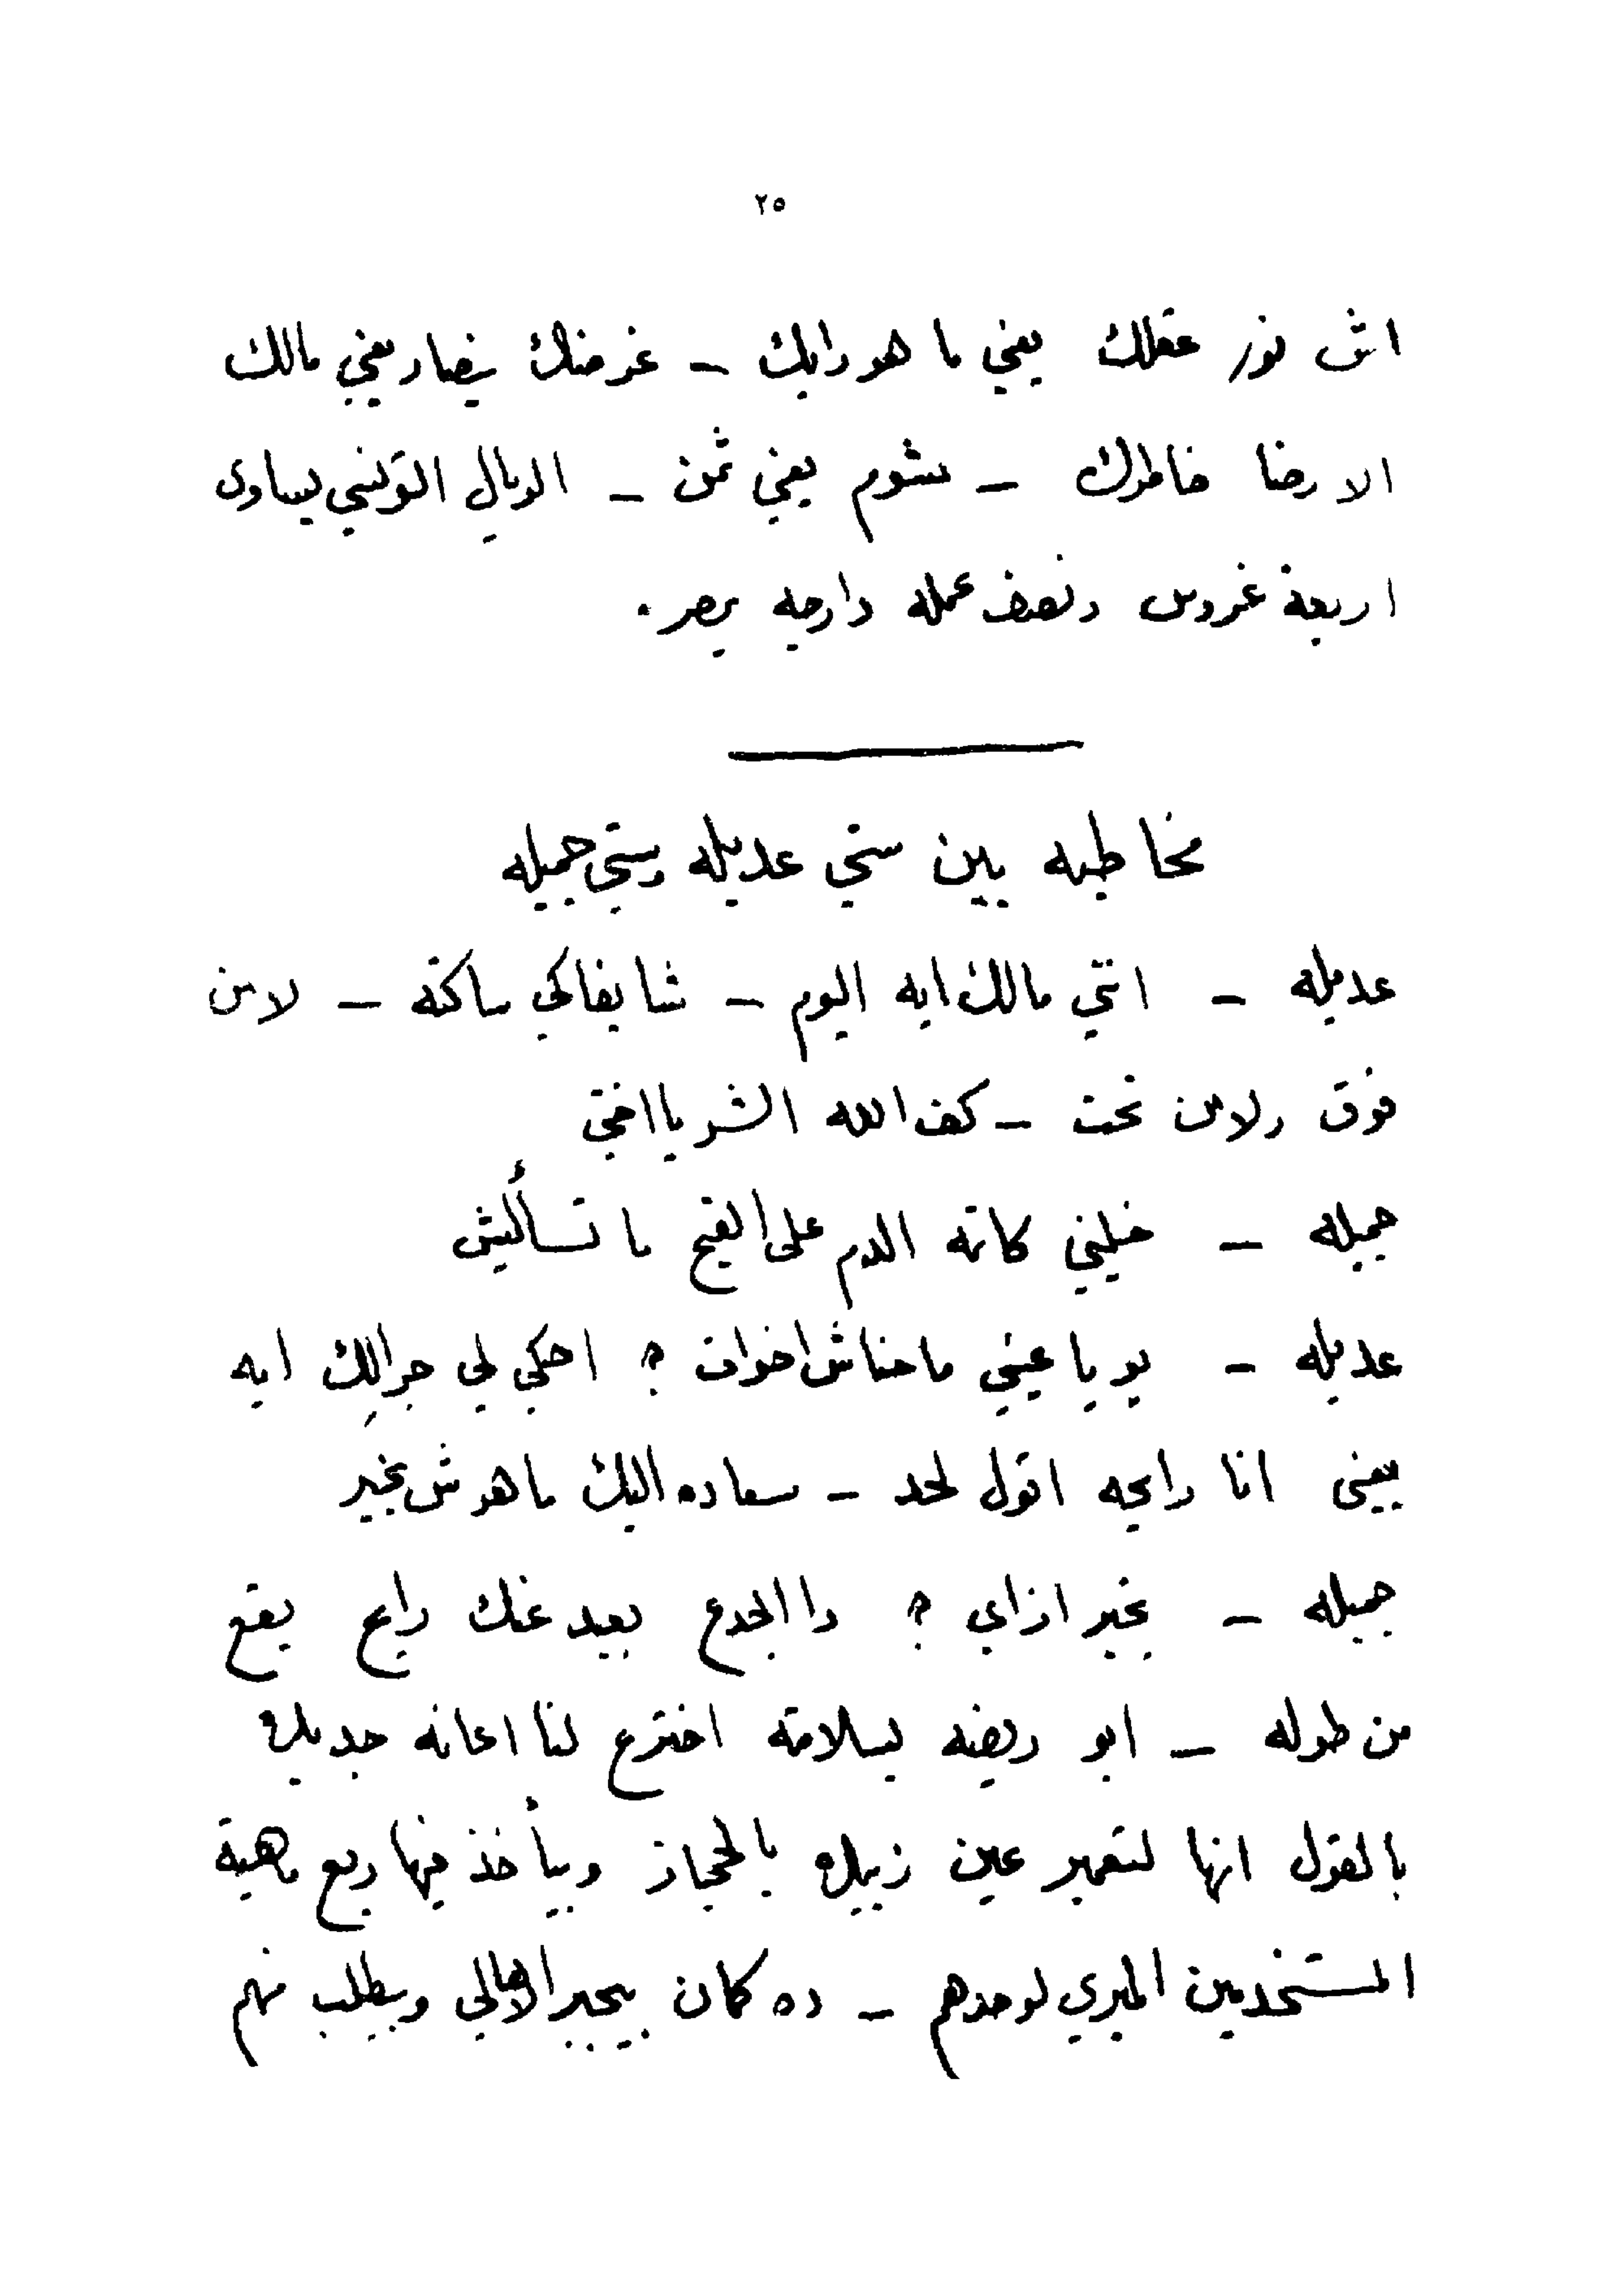 ٢٥
اش نوز عقلك يعني ما هو رايك – غرضك يضار يعني مالك
الا رضا خاطرك – سُوم يعني ثمن – الريال التونسي يساوى
اربعة غروس ونصف عمله دارجه بمصر .
مخاطبه بين ستي عديله وستي جميله
عديله – انتي مالك ايه اليوم – شايفاكي ساكتة – لا من
فوق ولا من تحت – كف الله الشر يا اختي
جميله – خليني كاتمه الدم على القيح ما تسأليش
عديله – يو يا عيني ما حناش اخوات ؟ احكي لي جرالِك ايه
يعنى انا رايحه اقول لحد – سعاده البك ما هوش بخير
جميله – بخير ازاي ؟ دا الجدع بعيد عنك رايح يقع
من طوله – ابو ريضه بسلامته اخترع لنا اعانه جديده
بالقول انها لتعمير عين زبيده بالحجاز وبيأخذ فيها ربع ماهية
المستخدمين الميري لوحدهم – ده كمان بيجبر الاهالي وبيطلب منهم